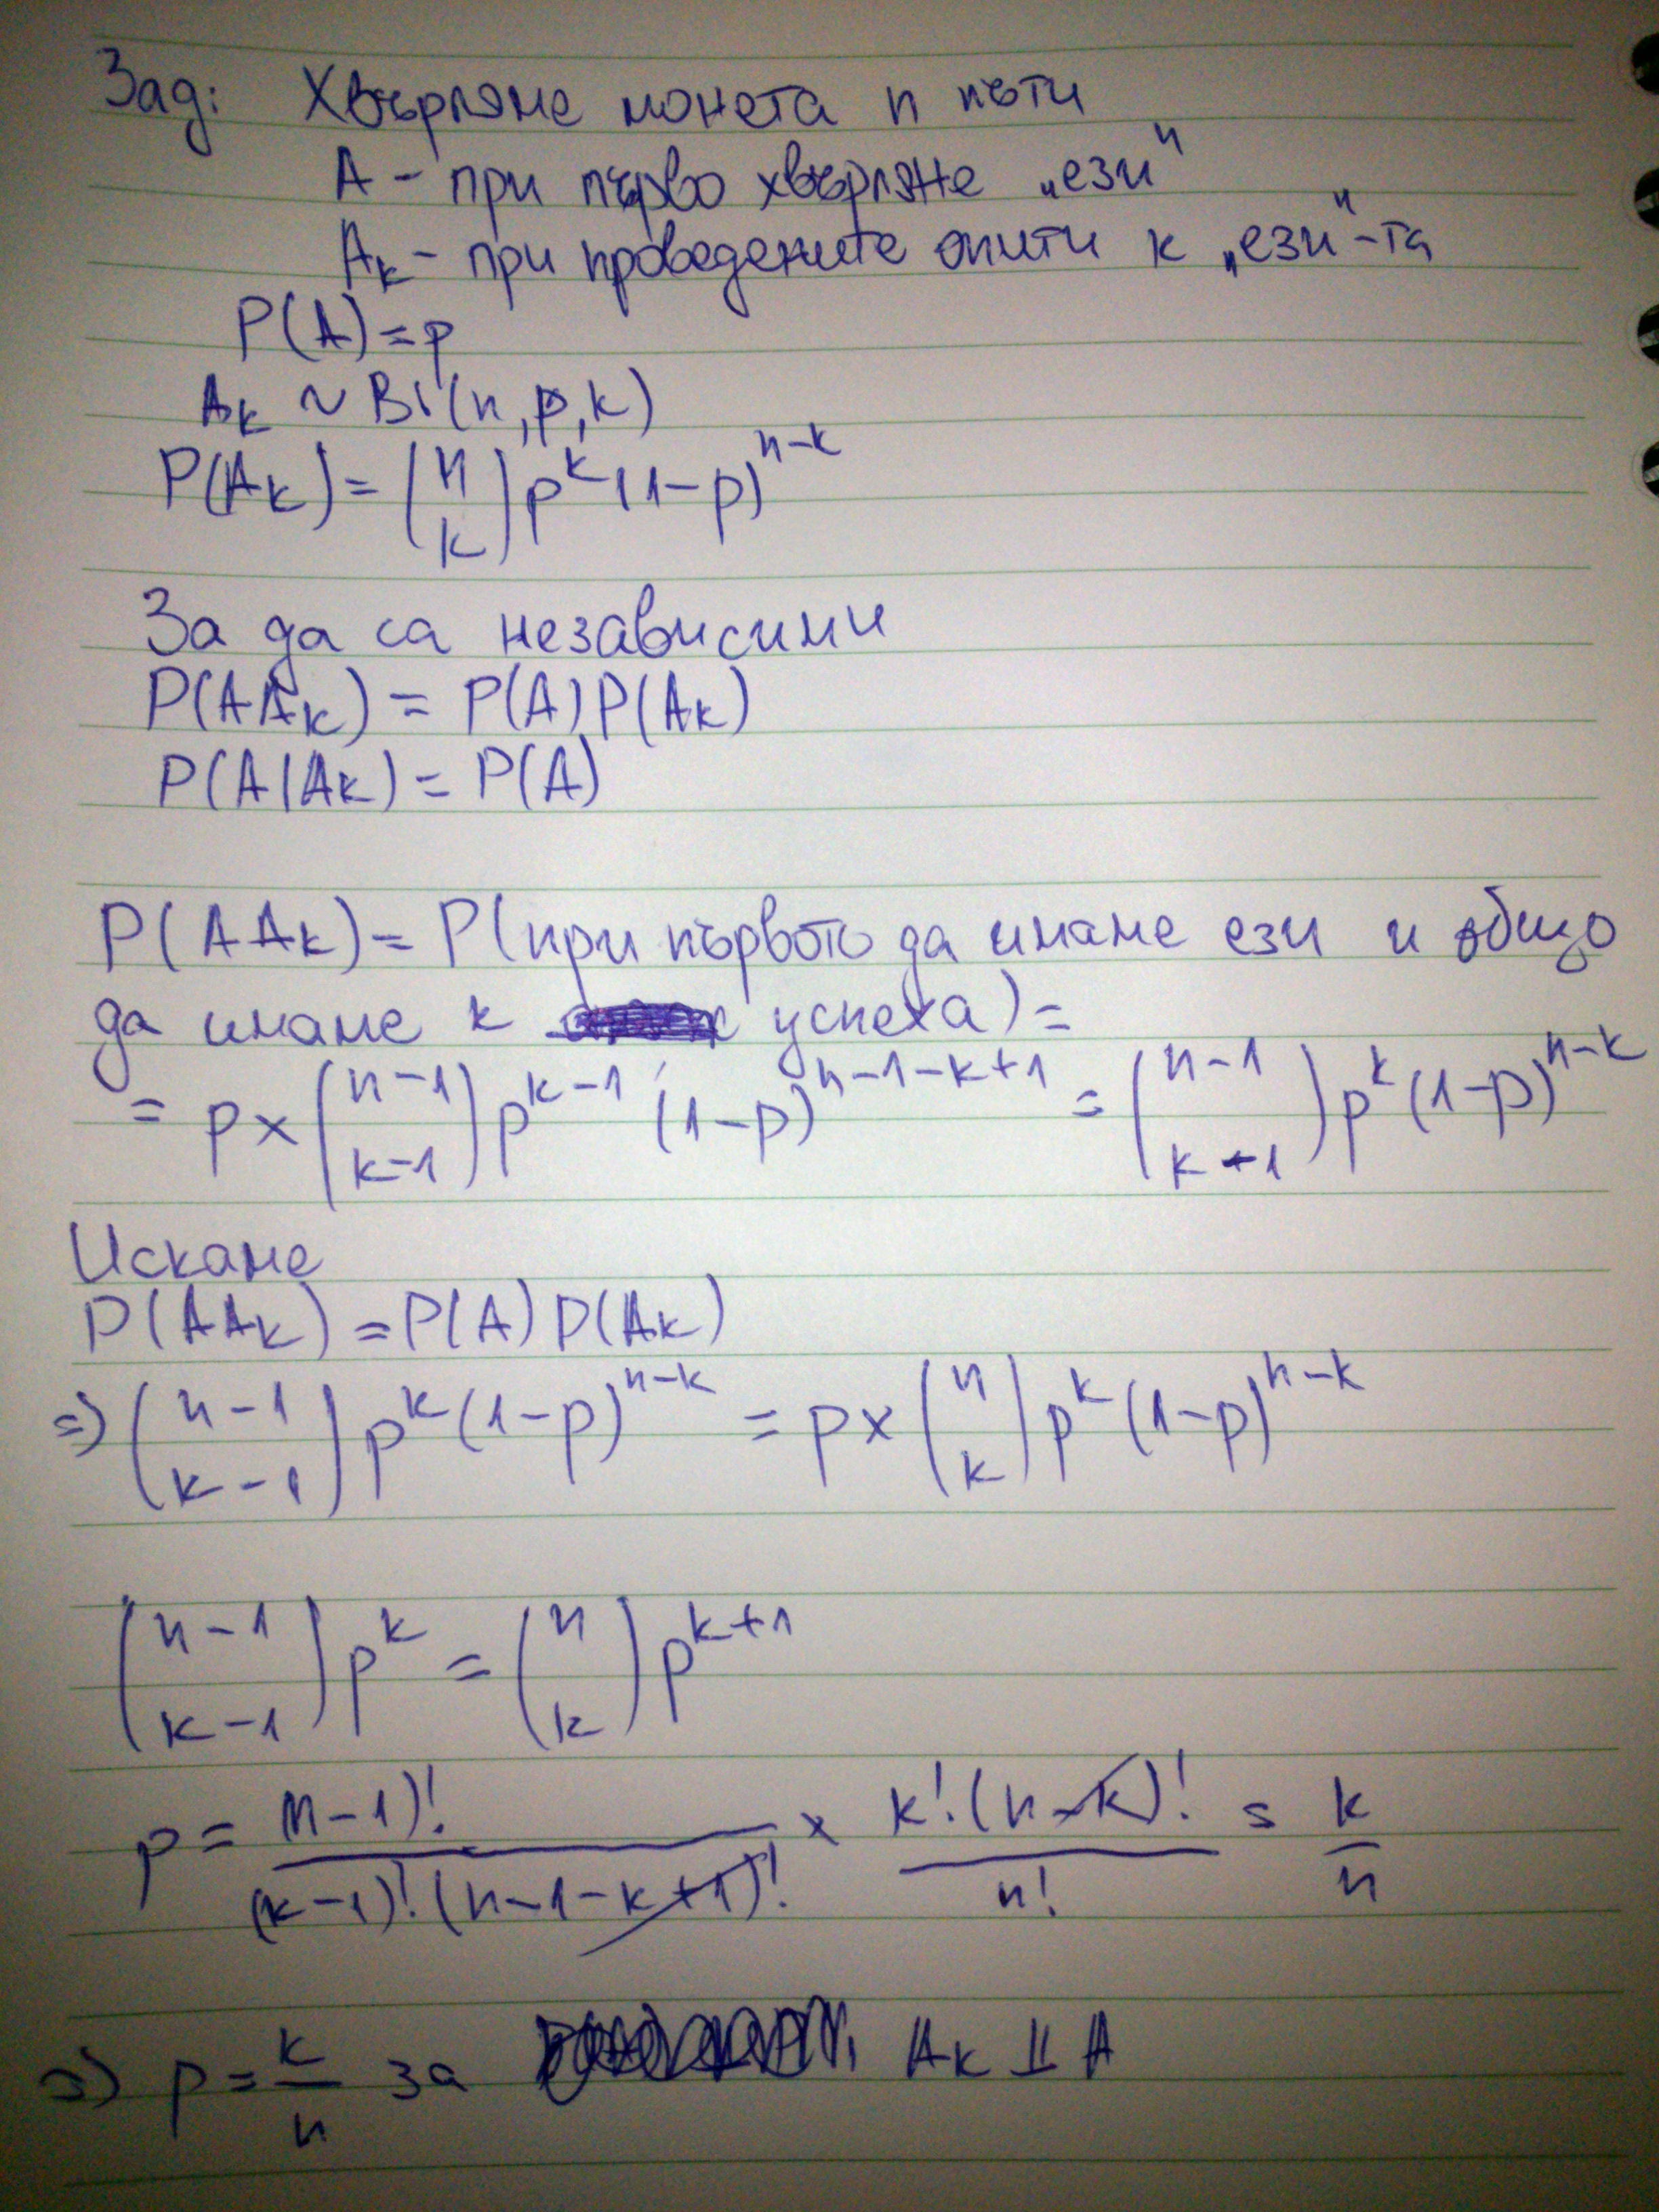 Зад: Хвърляме монета n пъти
A - при първо хвърляне „ези"
Aₖ - при проведените опити k „ези"-та
P(A)=p
Aₖ ~ Bi(n,p,k)
P(Aₖ) = (n k) p^k (1-p)^{n-k}
За да са независими
P(AAₖ) = P(A)P(Aₖ)
P(A|Aₖ) = P(A)
P(AAₖ) = P(при първото да имаме ези и общо
да имаме k успеха) =
= p × (n-1 k-1) p^{k-1} (1-p)^{n-1-k+1} = (n-1 k-1) p^k (1-p)^{n-k}
Искаме
P(AAₖ) = P(A)P(Aₖ)
=> (n-1 k-1) p^k (1-p)^{n-k} = p × (n k) p^k (1-p)^{n-k}
(n-1 k-1) p^k = (n k) p^{k+1}
p = (n-1)! / (k-1)!(n-1-k+1)! × k!(n-k)! / n! = k/n
=> p = k/n за Aₖ ⫫ A